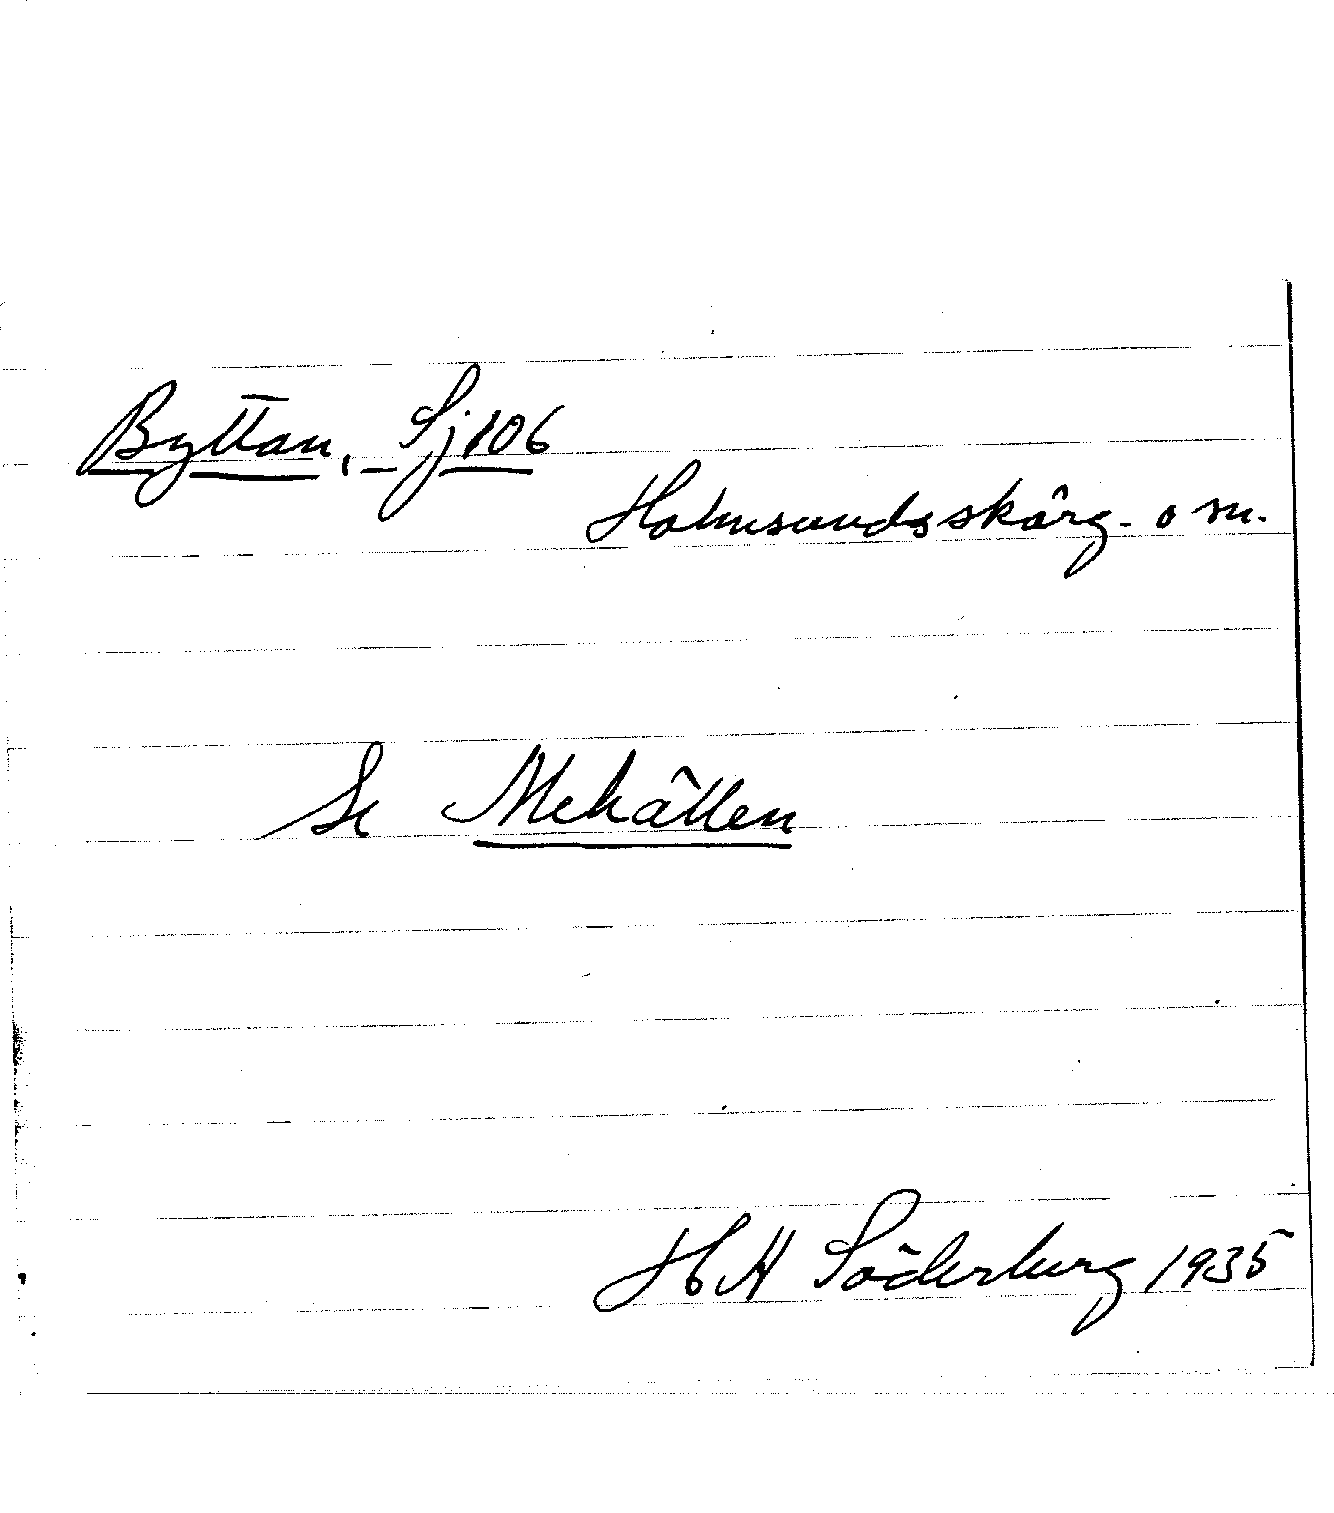 Byttan, – Sj 106
Holmsundsskärg. o m.
Se Mehällen
H H Söderberg 1935